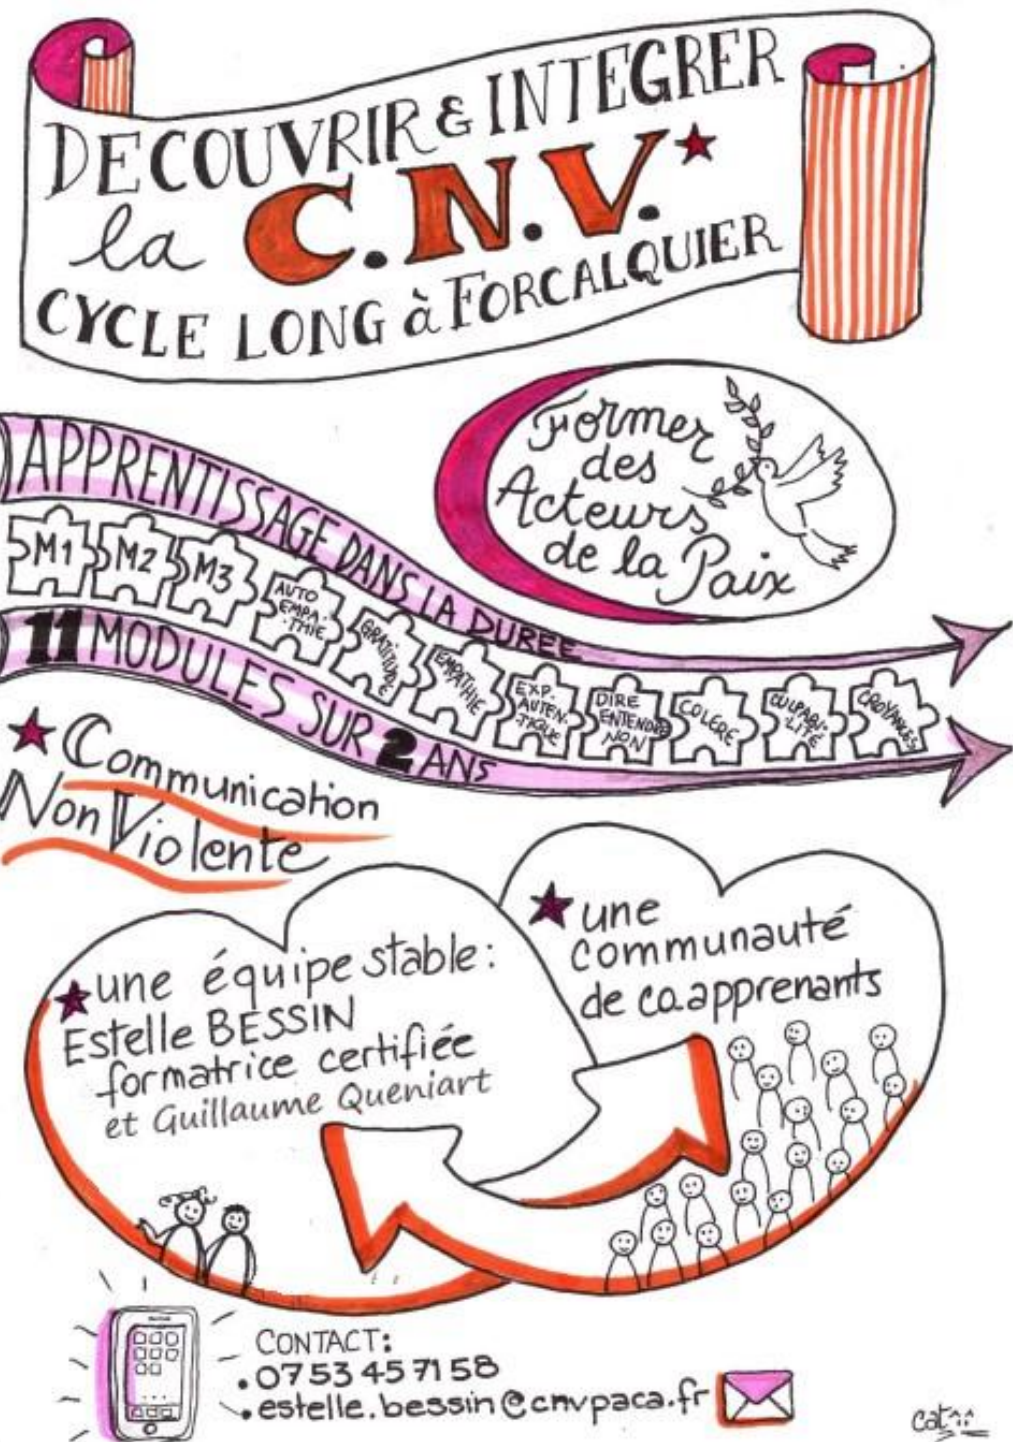 DECOUVRIR & INTEGRER
la C.N.V.*
CYCLE LONG à FORCALQUIER
Former
des
Acteurs
de la Paix
APPRENTISSAGE DANS LA DUREE
M1
M2
M3
AUTO
EMPA-
-THIE
GRATITUDE
EMPATHIE
EXP.
AUTEN-
-TIQUE
DIRE
ENTENDRE
NON
COLERE
CULPABI-
LITÉ
CROYANCES
11 MODULES SUR 2 ANS
* Communication
NonViolente
* une équipe stable:
Estelle BESSIN
formatrice certifiée
et Guillaume Queniart
* une
communauté
de co.apprenants
CONTACT:
. 07 53 45 71 58
. estelle.bessin@cnvpaca.fr
cat^^